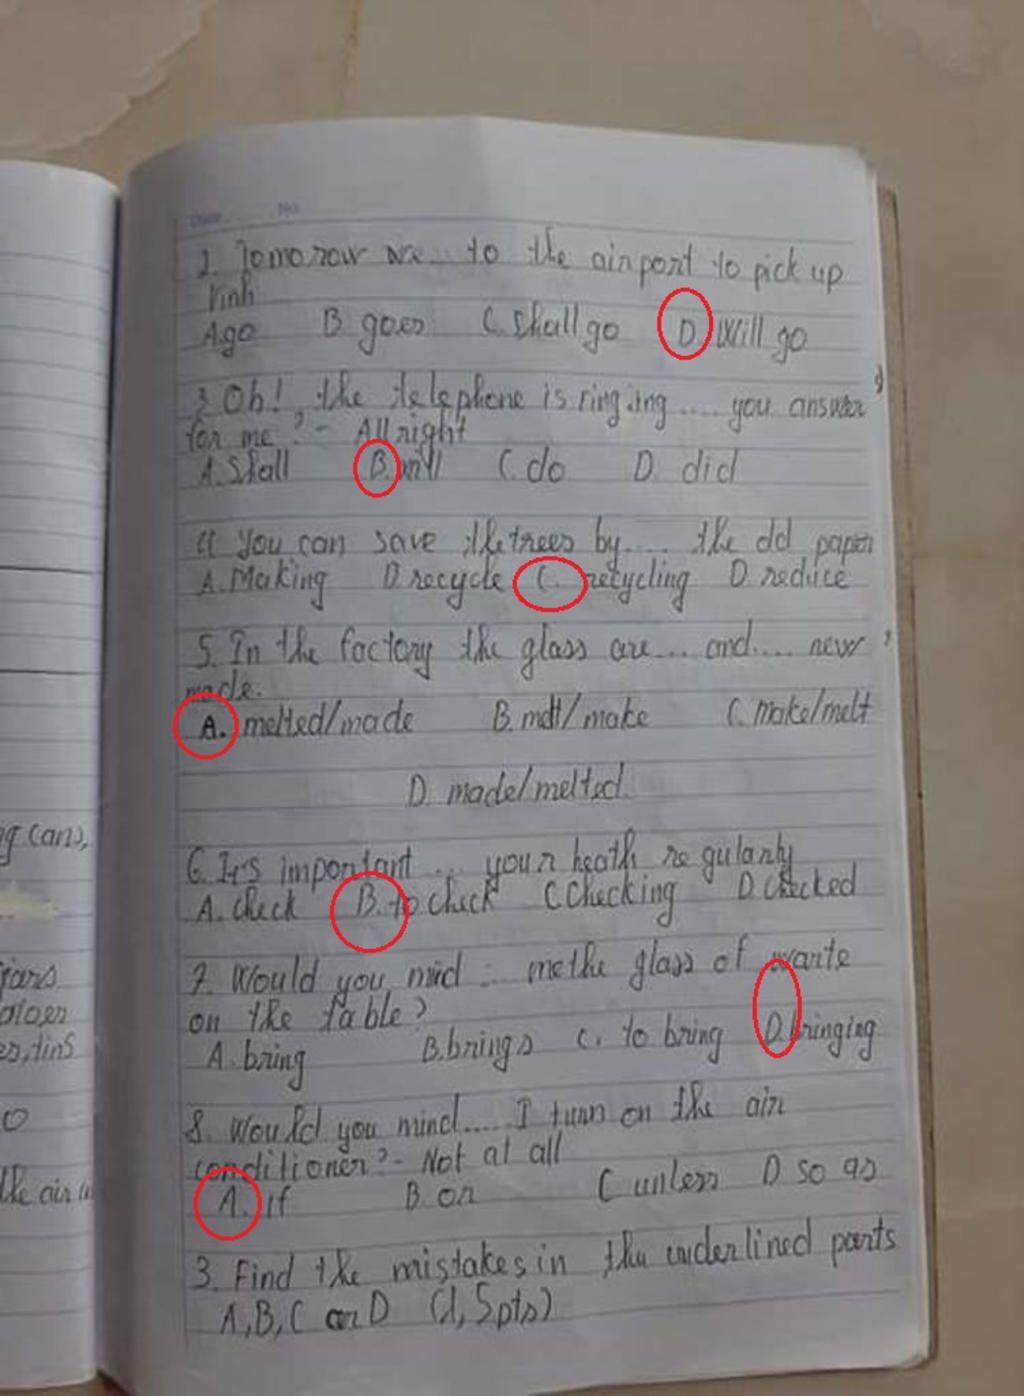 Date ........ No
2. Tomorrow we ... to the airport to pick up
Vinh
A.go B. goes C. Shall go D. Will go
3 Oh! the telephone is ringing .... you answer
for me? - All right
A. Shall B. will C. do D. did
4 You can save the trees by .... the old paper
A. Making B. recycle C. recycling D. reduce
5. In the factory the glass are ... and .... new
made.
A. melted/made B. melt/make C. Make/melt
D. made/melted.
6. It's important ... your heath regularly
A. check B. to check C Checking D. Checked
7. Would you mind ... me the glass of warte
on the table?
A. bring B. brings C. to bring D. bringing
8. Would you mind .... I turn on the air
conditioner? - Not at all
A. If B. or C unless D so as
3. Find the mistakes in the underlined parts
A, B, C or D (1, 5pts)
g cans,
jars
es, tins
the air